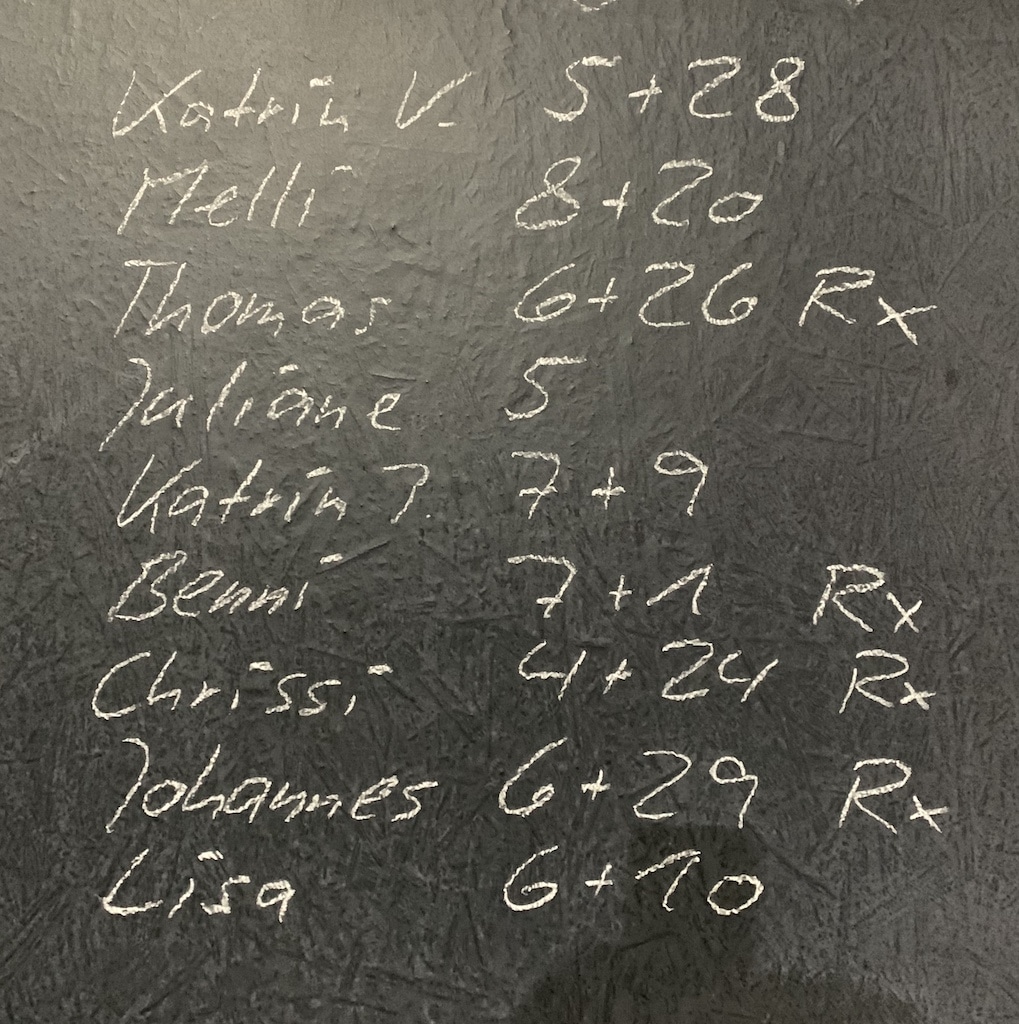 Katrin V. 5+28
Melli 8+20
Thomas 6+26 Rx
Juliane 5
Katrin J. 7+9
Benni 7+1 Rx
Chrissi 4+24 Rx
Johannes 6+29 Rx
Lisa 6+10